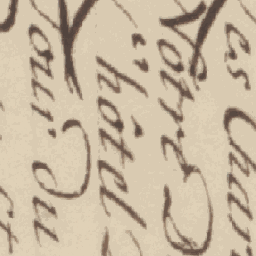 es Char
Notre D
" hôtel
our du